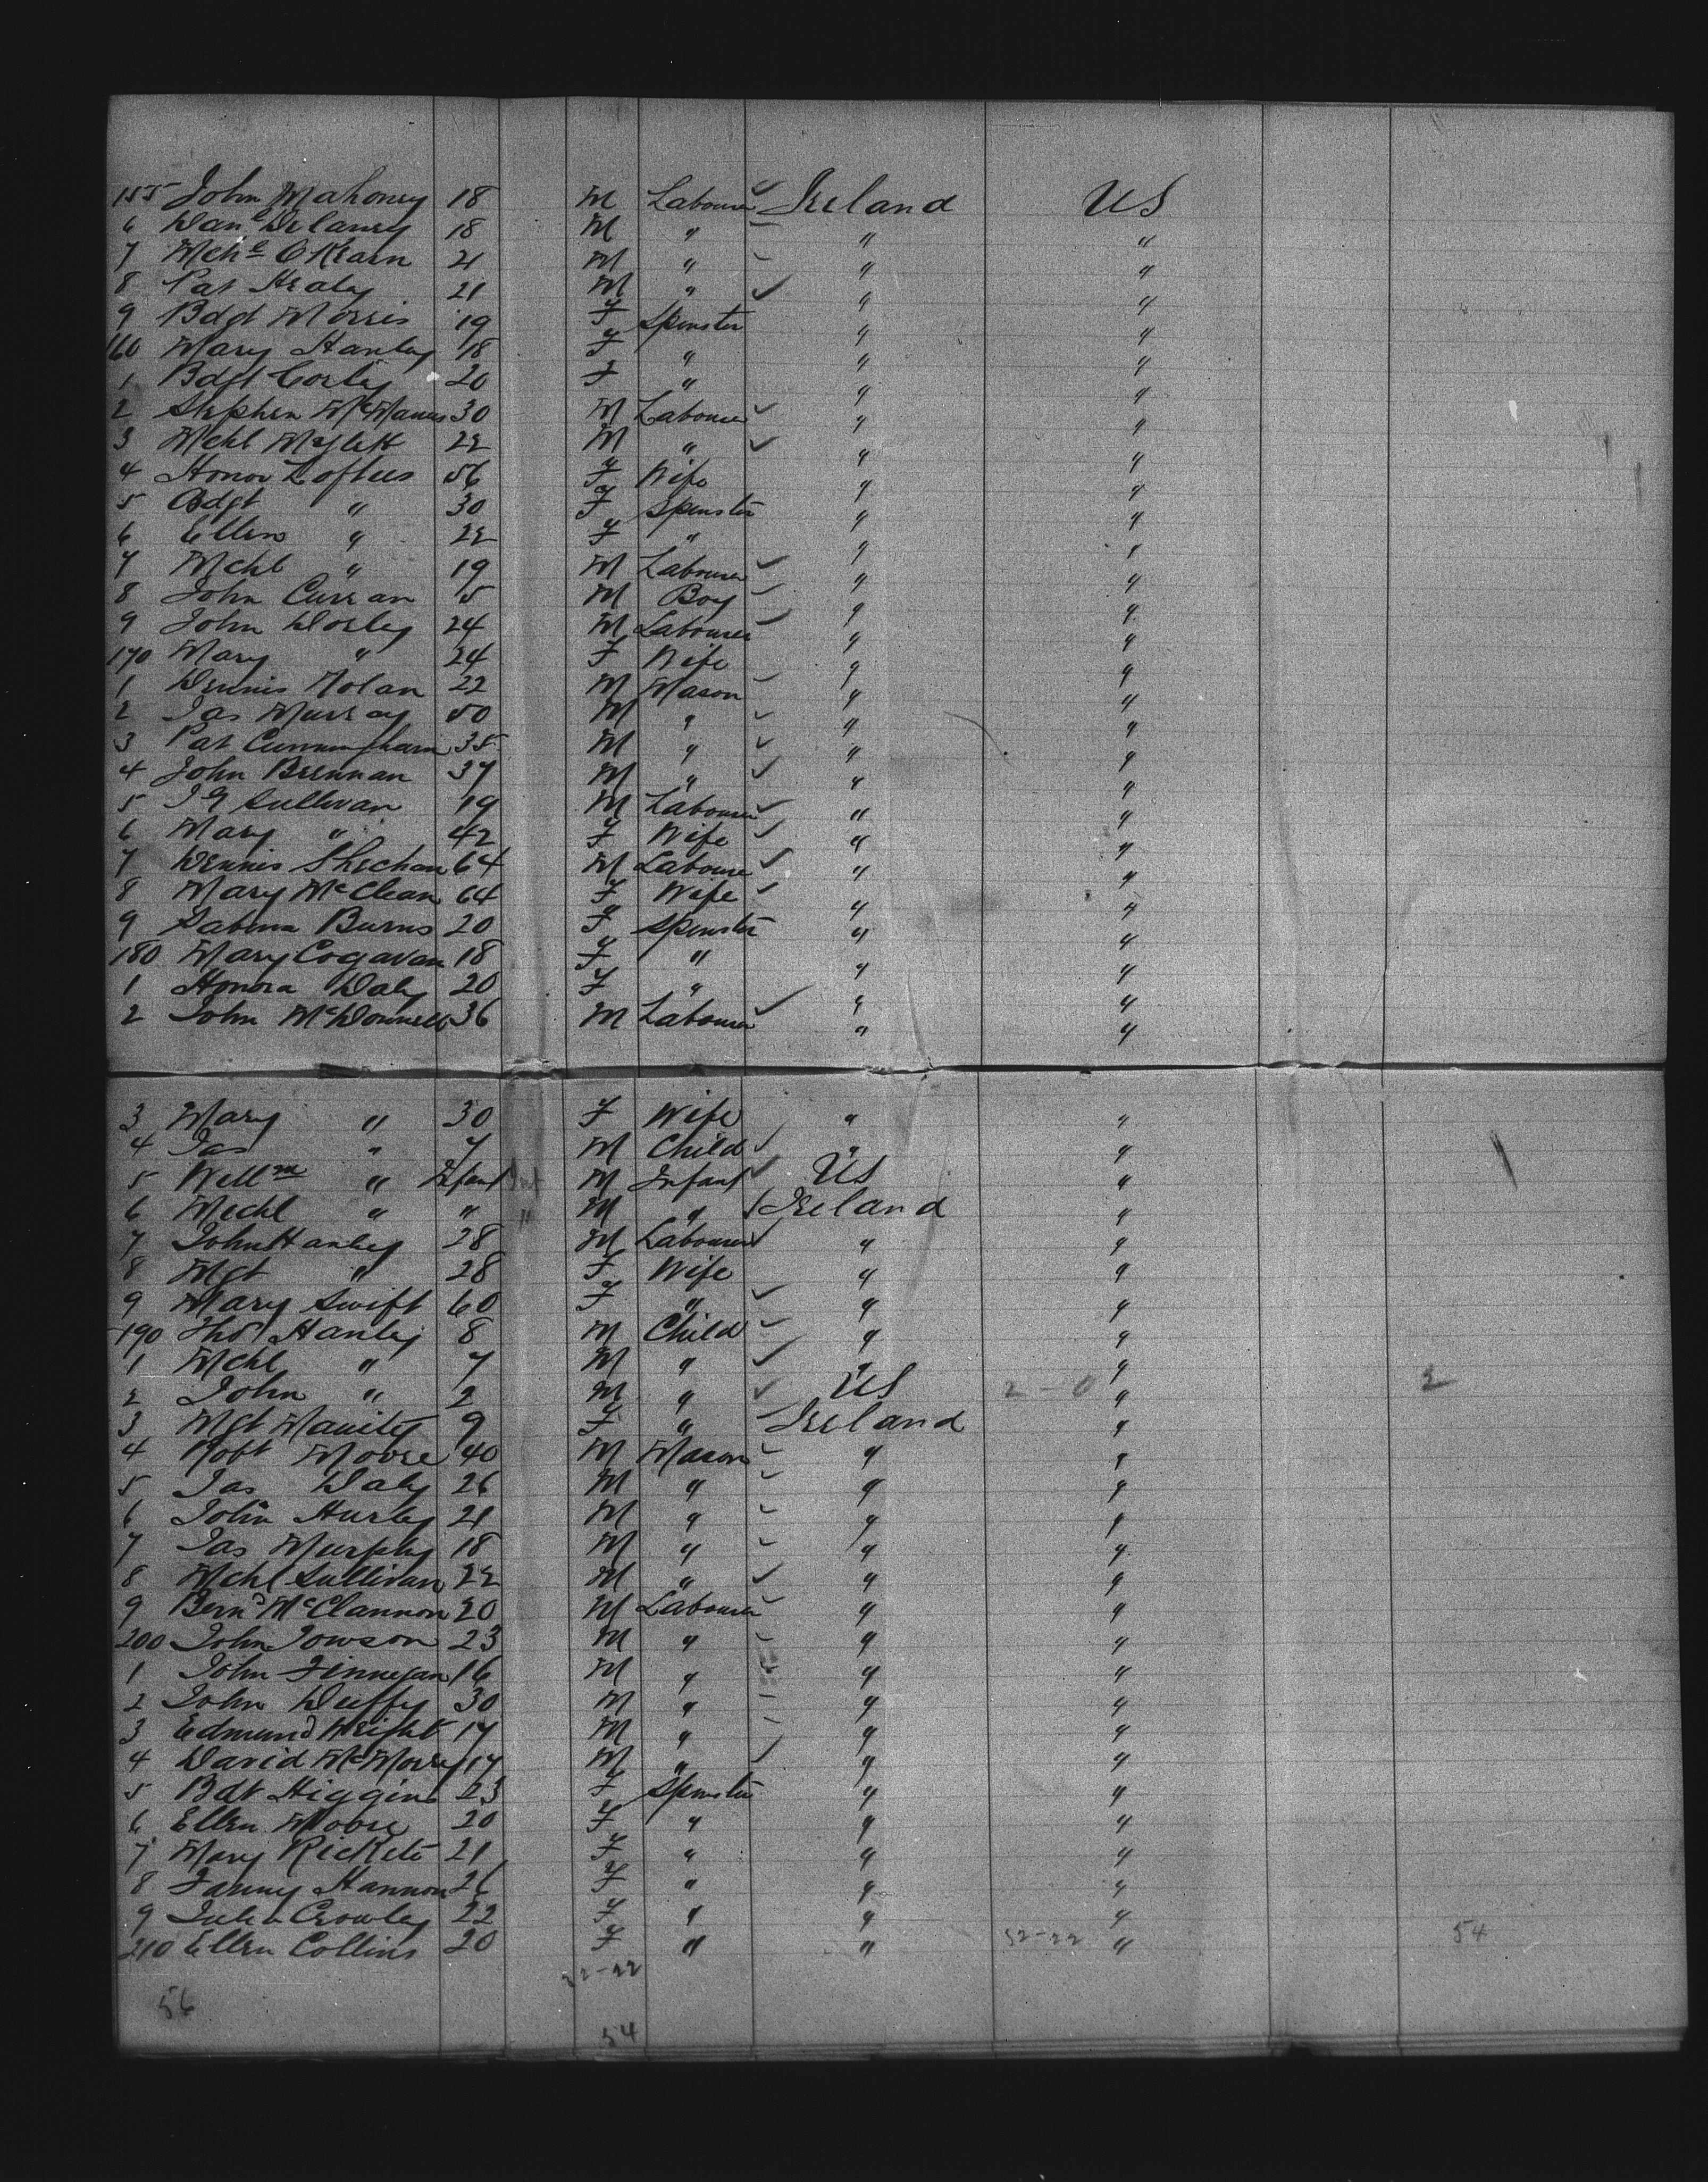 155 John Mahoney 18 M Labourer Ireland US
6 Danl Delaney 18 M " " "
7 Mchl O'Kearn 21 M " " "
8 Pat Healy 21 M " " "
9 Bdgt Morris 19 F Spinster " "
160 Mary Hanley 18 F " " "
1 Bdgt 20 F " " "
2 Stephen McManus 30 M Labourer " "
3 Mchl 22 M " " "
4 Honor Loftus 56 F Wife " "
5 Bdgt " 30 F Spinster " "
6 Ellen " 22 F " " "
7 Mchl " 19 M Labourer " "
8 John Curran 15 M Boy " "
9 John Dorley 24 M Labourer " "
170 Mary " 24 F Wife " "
1 Dennis Nolan 22 M Mason " "
2 Jas Murray 50 M " " "
3 Pat Cunningham 35 M " " "
4 John Brennan 37 M " " "
5 Sullivan 19 M Labourer " "
6 Mary " 42 F Wife " "
7 Dennis Sheehan 64 M Labourer " "
8 Mary McClean 64 F Wife " "
9 Sabina Burns 20 F Spinster " "
180 Mary Cogavan 18 F " " "
1 Honora Daly 20 F " " "
2 John McDonnell 36 M Labourer " "
3 Mary " 30 F Wife " "
4 Jas " 7 M Child " "
5 Willm " Infant M Infant US "
6 Michl " " M " Ireland "
7 John Hanley 28 M Labourer " "
8 Mgt " 28 F Wife " "
9 Mary Swift 60 F " " "
190 Thos Hanley 8 M Child " "
1 Mchl " 7 M " " "
2 John " 2 M " US 2-0 " 2
3 Mgt 9 F " Ireland "
4 Robt Moore 40 M Mason " "
5 Jas Daly 26 M " " "
6 John Hurley 21 M " " "
7 Jas Murphy 18 M " " "
8 Mchl Sullivan 22 M " " "
9 Bernd McClannon 20 M Labourer " "
200 John Jowson 23 M " " "
1 John Finnegan 16 M " " "
2 John Duffy 30 M " " "
3 Edmund Wright 17 M " " "
4 David 17 M " " "
5 Bdt Higgins 23 F Spinster " "
6 Ellen Moore 20 F " " "
7 Mary Rickets 21 F " " "
8 Fanny Hannon 26 F " " "
9 Julia Crowley 22 F " " "
210 Ellen Collins 20 F " " 32-22 " 54
32-22
56
54